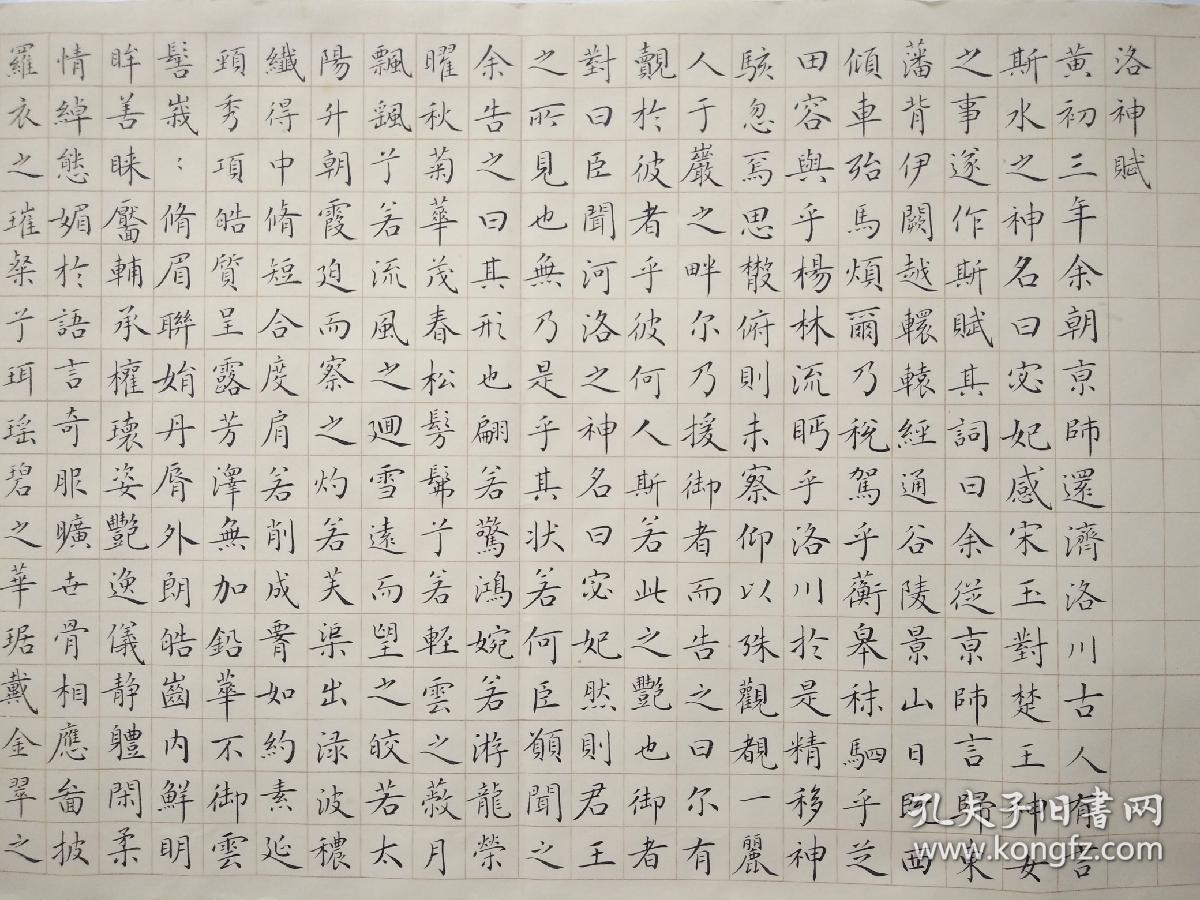 洛神賦
黄初三年余朝京師還濟洛川古人有言
斯水之神名曰宓妃感宋玉對楚王神女
之事遂作斯賦其詞曰余従京師言歸東
藩背伊闕越轘轅經通谷陵景山日既西
傾車殆馬煩爾乃税駕乎蘅皋秣駟乎芝
田容與乎楊林流眄乎洛川於是精移神
駭忽焉思散俯則未察仰以殊觀覩一麗
人于巖之畔尔乃援御者而告之曰尔有
覿於彼者乎彼何人斯若此之艷也御者
對曰臣聞河洛之神名曰宓妃然則君王
之所見也無乃是乎其状若何臣願聞之
余告之曰其形也翩若驚鴻婉若游龍榮
曜秋菊華茂春松髣髴兮若輕雲之蔽月
飄颻兮若流風之迴雪遠而望之皎若太
陽升朝霞迫而察之灼若芙渠出渌波穠
纖得中脩短合度肩若削成腰如約素延
頸秀項皓質呈露芳澤無加鉛華不御雲
髻峩:脩眉聯娟丹脣外朗皓齒内鮮明
眸善睞靨輔承權瓌姿艷逸儀静軆閑柔
情綽態媚於語言奇服曠世骨相應圖披
羅衣之璀粲兮珥瑶碧之華琚戴金翠之
孔夫子旧书网
www.kongfz.com